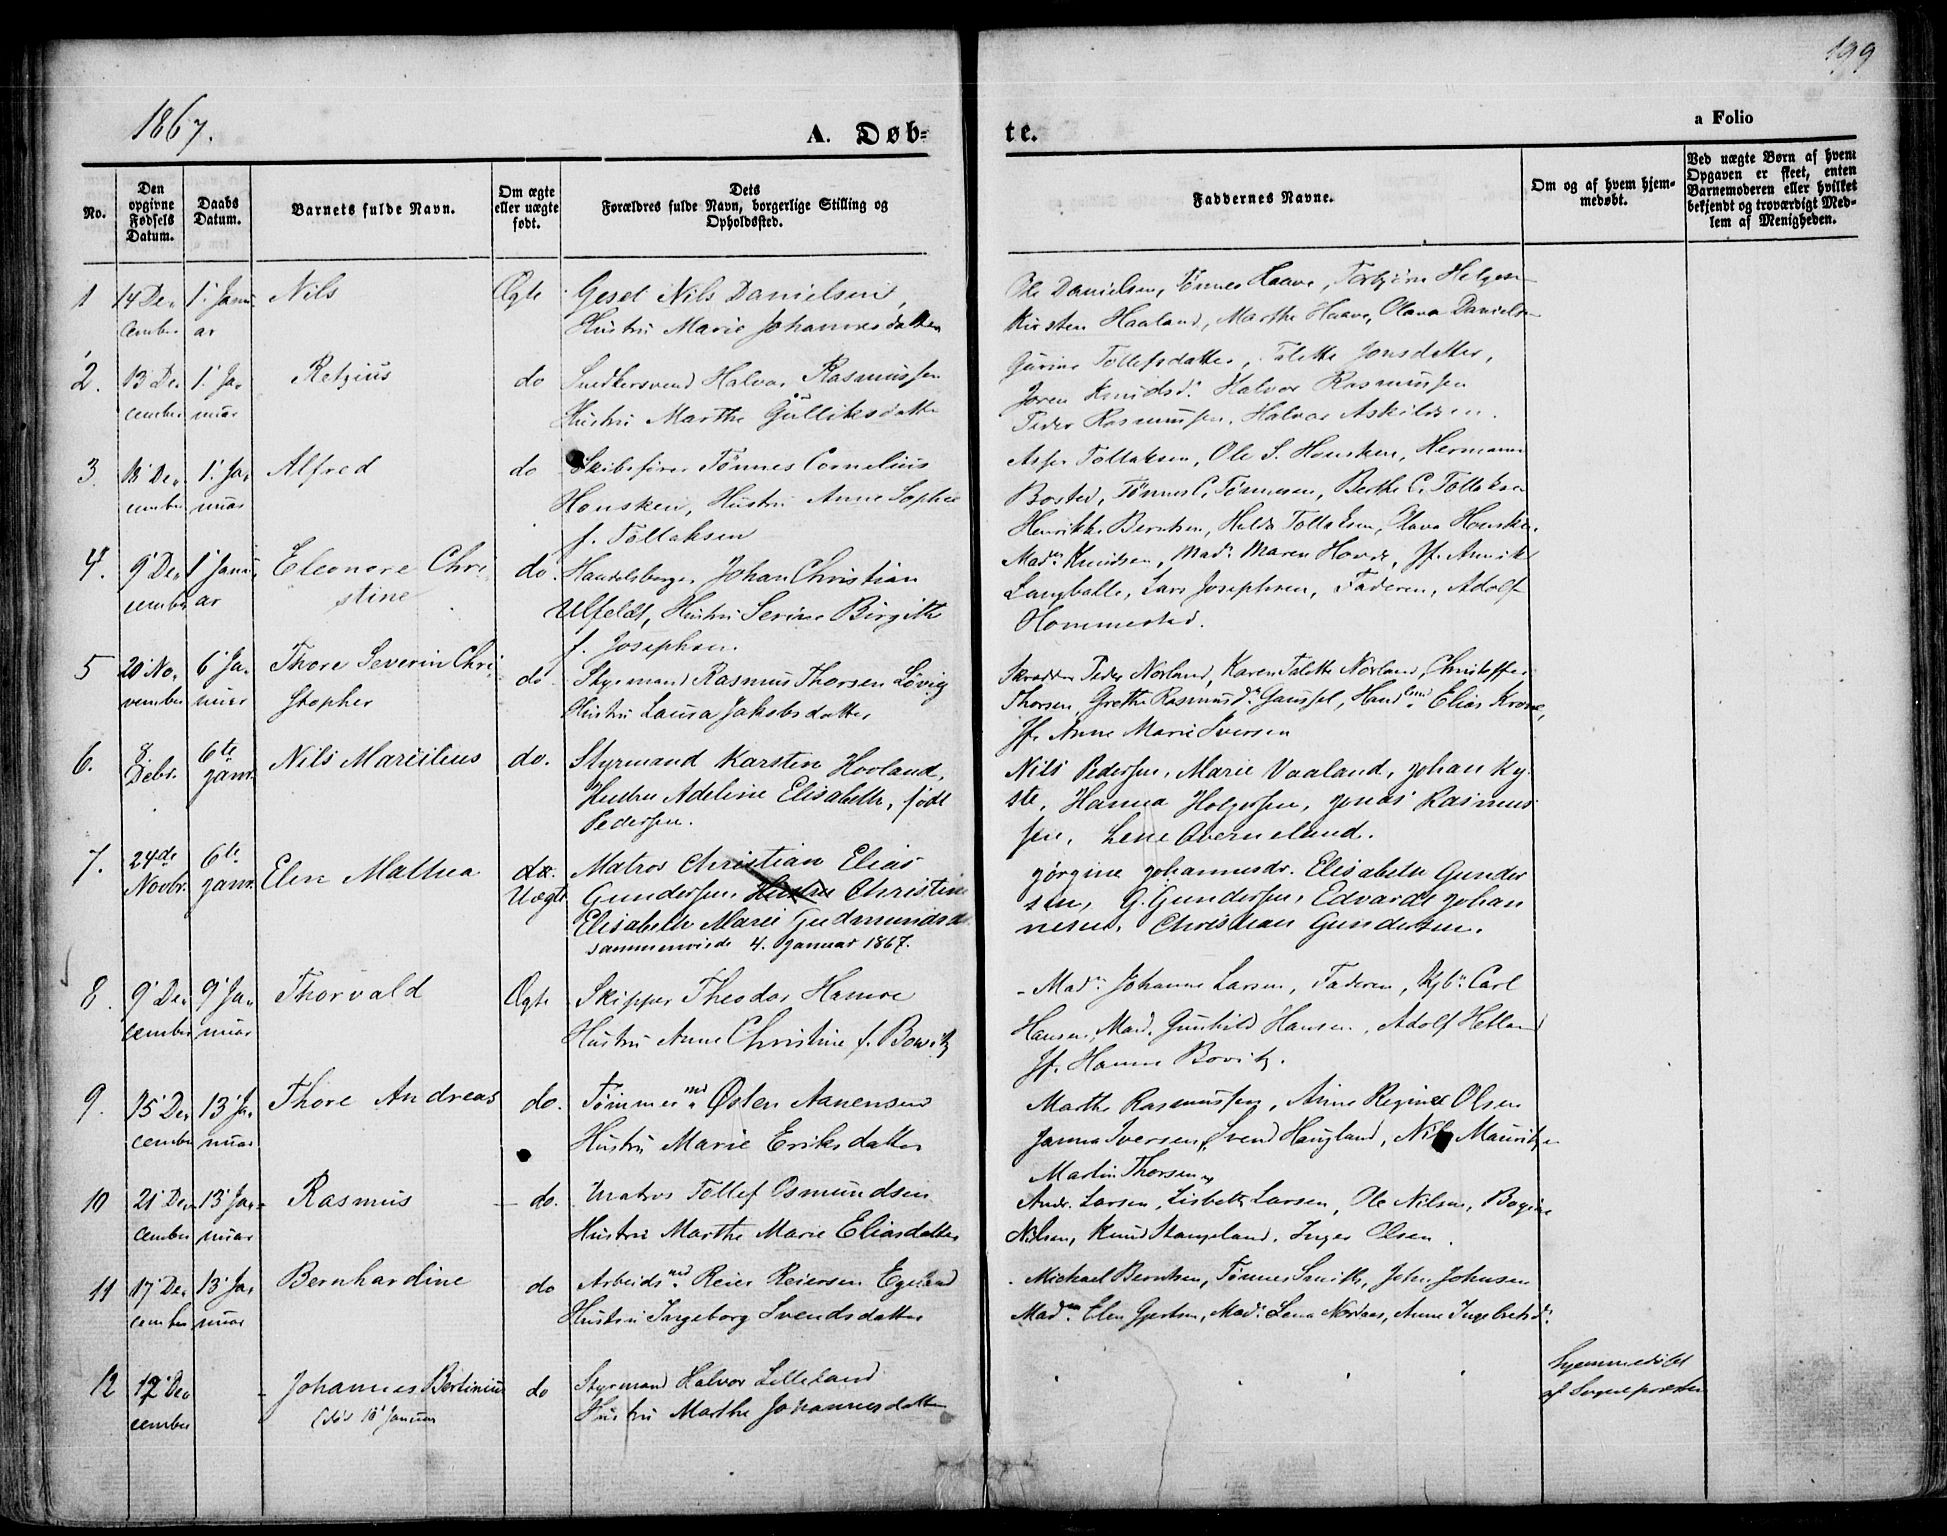 199
1867.
A. Døb=
te.
a Folio
No.
Den opgivne Fødsels Datum.
Daabs Datum.
Barnets fulde Navn.
Om ægte eller uægte født.
Dets Forældres fulde Navn, borgerlige Stilling og Opholdssted.
Faddernes Navne.
Om og af hvem hjemmedøbt.
Ved uægte Børn af hvem Opgaven er skeet, enten Barnemoderen eller hvilket bekjendt og troværdigt Medlem af Menigheden.
1 14 De- 1' Janu- Nils Ægte Gesel Nils Danielsen,
cember ar Hustru Marie Johannesdatter
Ole Danielsen, Tønnes Haave, Torbjørn Helgesen
Kirsten Haaland, Marthe Haave, Olava Danielsen
2. 13 De- 1' Ja- Retzius do Snedkersvend Halvor Rasmussen
cember nuar Hustru Marthe Gulliksdatter
Gurine Tollefsdatter, Talette Jonsdatter,
Joren Knudsd. Halvor Rasmussen
Peder Rasmussen, Halvor Askildsen.
3. 18 De- 1' Ja- Alfred do Skibsfører Tønnes Cornelius
cember nuar Housken, Hustru Anne Sophie
f. Tollaksen
Asser Tollaksen, Ole S. Housken, Hermann
Bosted, Tønnes C. Tønnesen, Berthe C. Tollaksen
Henrikke Berntsen, Hulda Tollaksen, Olava Housken.
4. 9' De- 1' Janu- Eleonore Chri- do. Handelsborger Johan Christian
cember ar stine Ulfeldt, Hustru Serine Birgitte
f. Josephsen.
Madm Knudsen, Madm Maren Hovde, Jf. Annik
Langballe, Lars Josephsen, Faderen, Adolf
Hommerstad.
5 20' No- 6' Ja- Thore Severin Chri- do Styrmand Rasmus Thorsen Løvig
vember nuar stopher Hustru Laura Jakobsdatter
Skrædder Peder Norland, Karen Talette Norland, Christoffer
Thorsen, Grethe Rasmusd. Gaussel, Hand. Elias Krone,
Jf. Anne Marie Iversen
6. 8 6te Nils Marcilius do. Styrmand Karsten Hovland,
Debr. Janr. Hustru Adeline Elisabeth, født
Pedersen.
Nils Pedersen, Marie Vaaland, Johan Ky-
ste, Hanna Holgersen, Jonas Rasmus-
sen, Lene Auerneland.
7. 24de 6te Eline Mathea do. Matros Christian Elias
Novbr. Janr. Uægte Gundersen, Hustru Christine
Elisabeth Marie Gudmundsd.
sammenviede 4. Januar 1867.
Jørgine Johannesdr. Elisabeth Gunder-
sen, G. Gundersen, Edvard Johan-
nesen, Christian Gundersen.
8. 9' De- 9' Ja- Thorvald Ægte Skipper Theodor Hamre
cember nuar Hustru Anne Christine f. Bowitz
- Madm Johanne Larsen, Faderen, Kjbm Carl
Hansen, Mad. Gunhild Hansen, Adolf Hetland
Jf. Hanne Bovitz.
9. 15' De- 13' Ja- Thore Andreas do. Tømmermd. Østen Aanensen
cember nuar Hustru Marie Eriksdatter
Marthe Rasmussen, Anne Regine Olsen
Janna Iversen, Svend Haugland, Nils Mauritzen
Martin Thorsen
10 21 De- 13' Ja- Rasmus do. Matros Tollef Osmundsen
cember nuar Hustru Marthe Marie Eliasdatter
Andr. Larsen, Lisbeth Larsen, Ole Nilsen, Bogine
Nilsen, Knud Stangeland, Inger Olsen.
11 17' De- 13' Ja- Bernhardine do Arbeidsmd. Reier Reiersen Egeland
cember nuar Hustru Ingeborg Svendsdatter
Michael Berntsen, Tønnes Smith, John Johnsen
Madm. Elen Gjertsen, Madm. Lena Nordaas, Anne Ingebretsdr.
12 12' De- Johannes Bertinius do Styrmand Halvor Lilleland
cember (død 18' Januar Hustru Marthe Johannesdatter
hjemmedøbt
af Sognepræsten